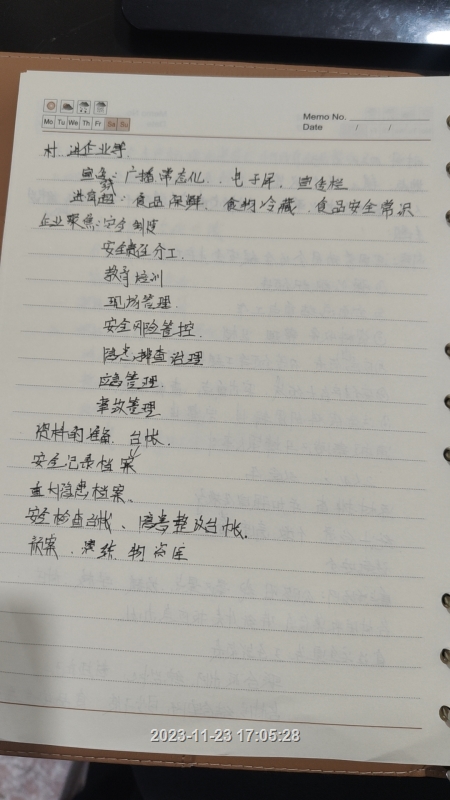 Mo Tu We Th Fr Sa Su
Memo No.
Date / /
村. 进企业等.
宣传: 广播常态化. 电子屏. 宣传栏
进商超: 食品保鲜. 食物冷藏. 食品安全常识
企业聚焦: 安全制度
安全责任分工.
教育培训
现场管理.
安全风险管控.
隐患排查治理
应急管理.
事故管理
资料的准备. 台帐.
安全记录档案
重大隐患档案.
安全检查台帐、隐患整改台帐.
预案. 演练. 物资库
2023-11-23 17:05:28